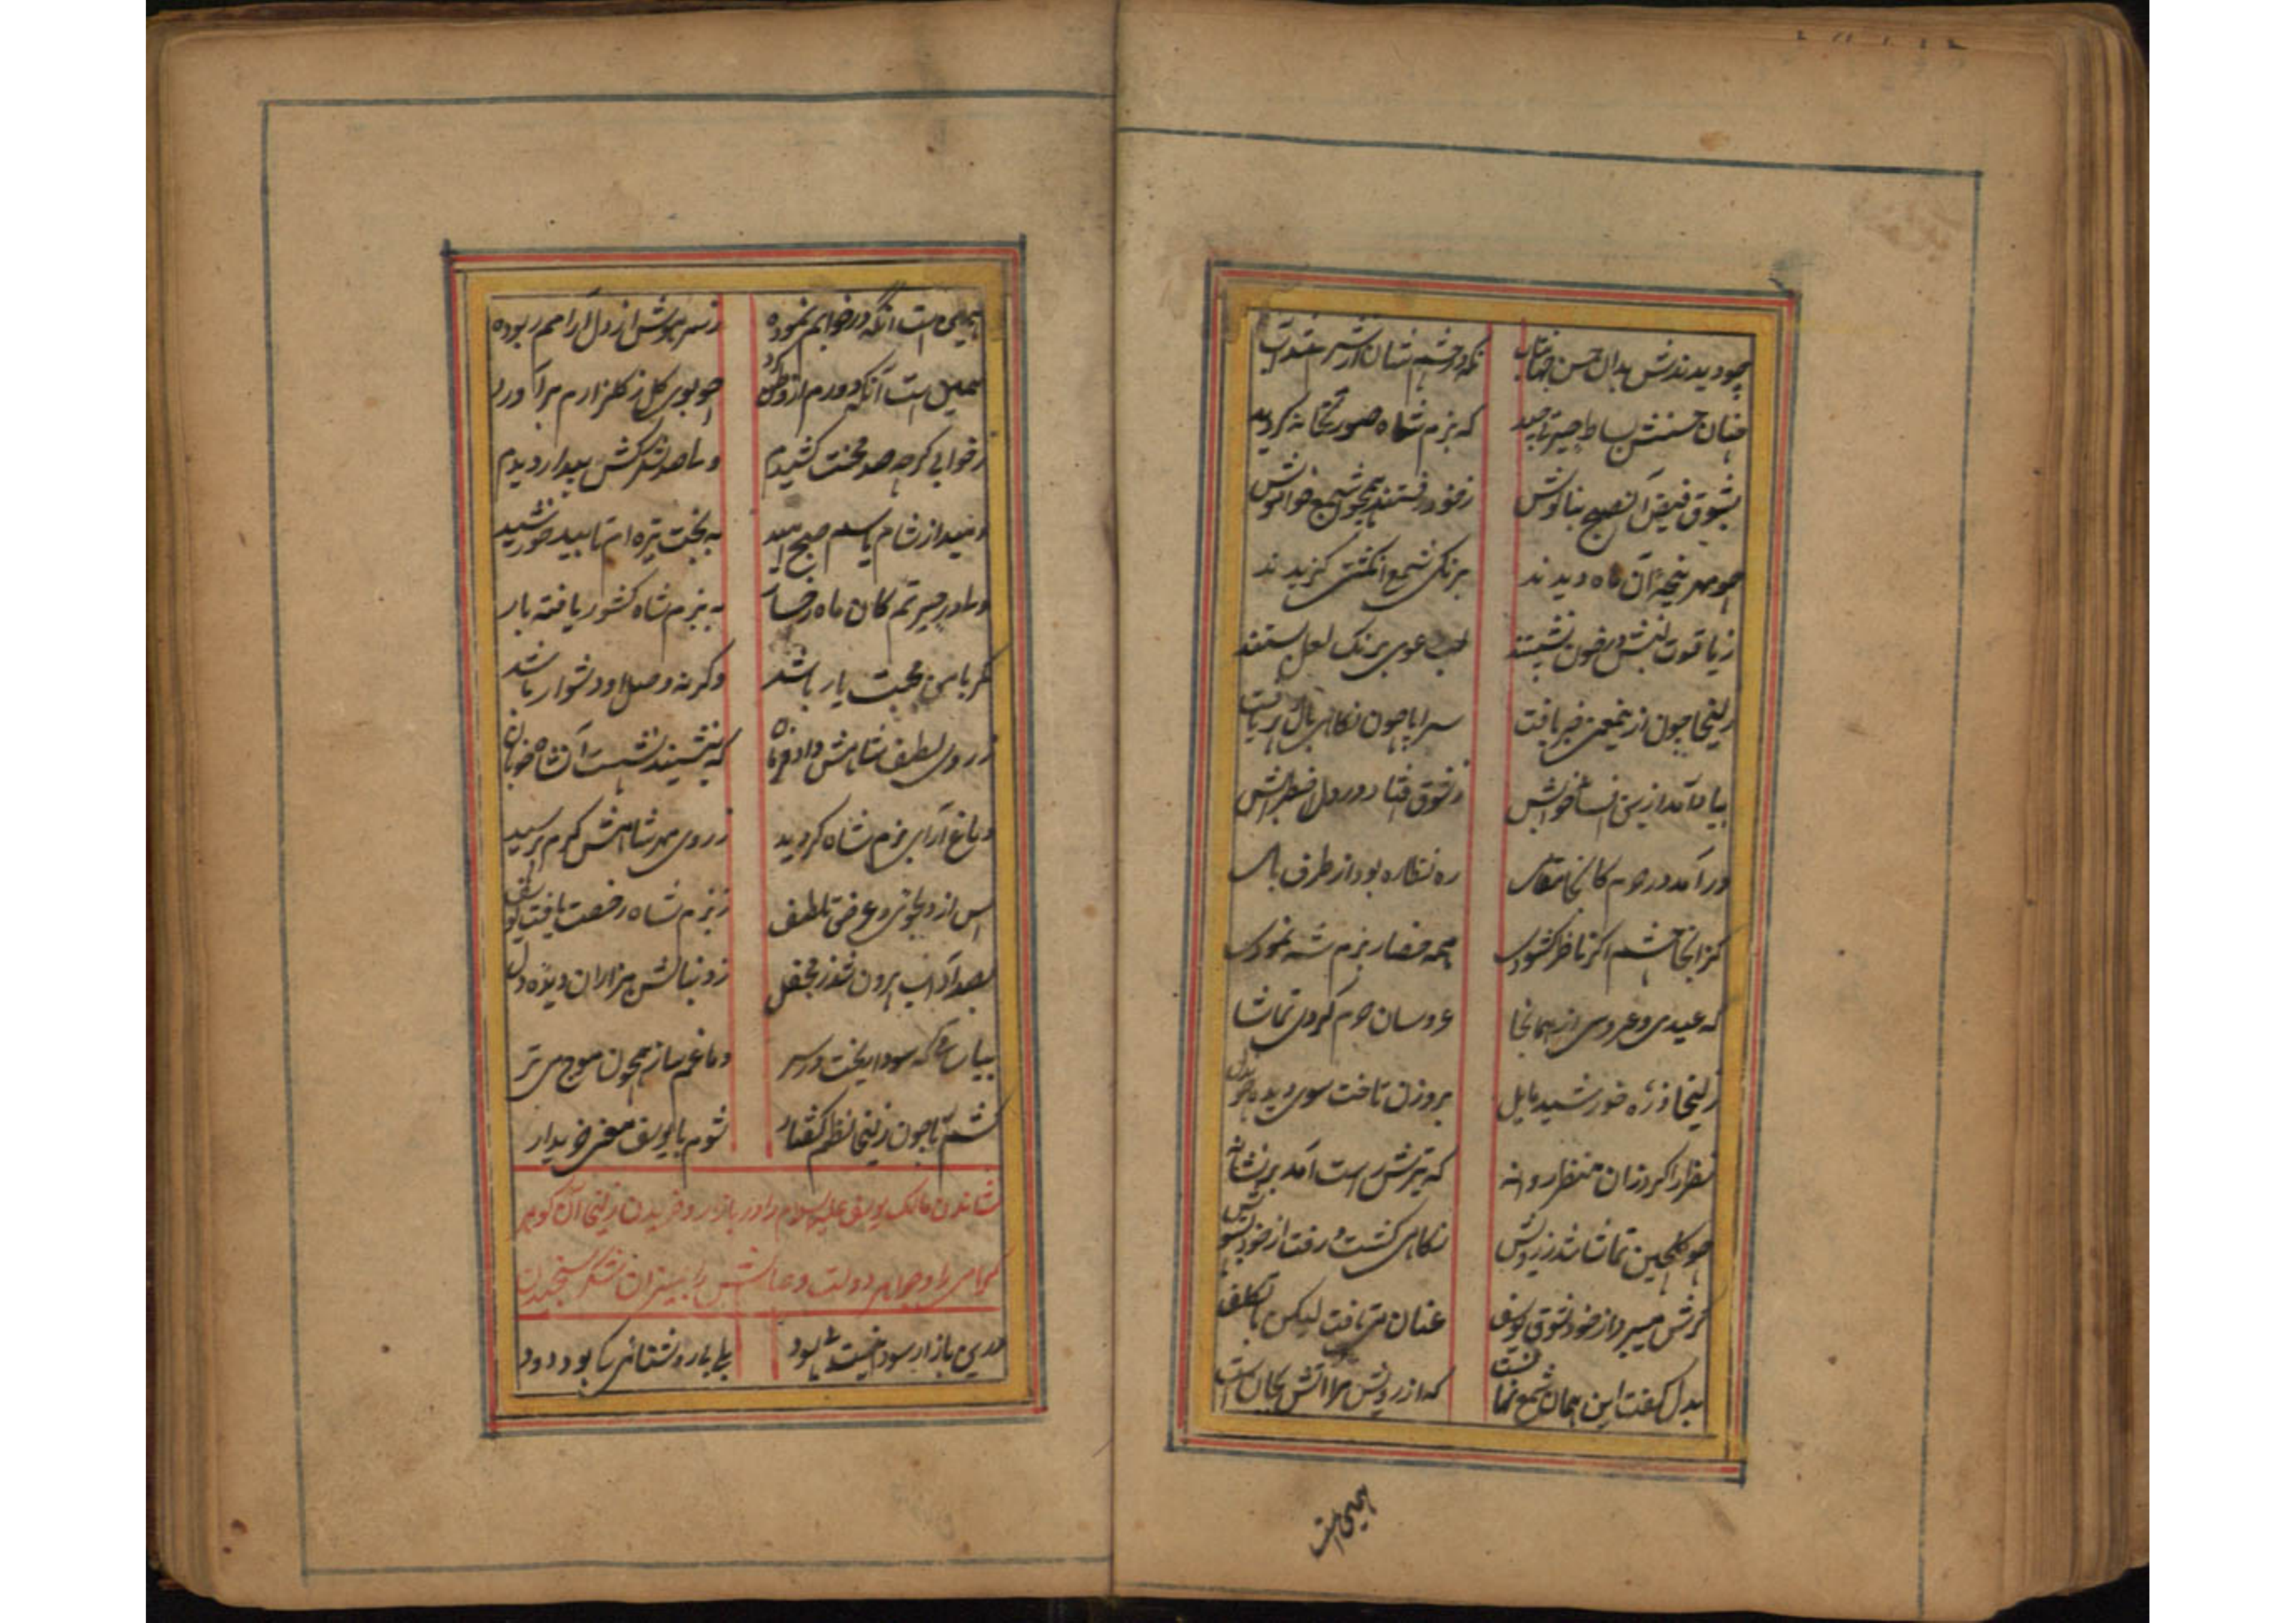 چو دیدندش بدان حسن جهانتاب نکه در چشم شان از شرم شد آب
چنان حسنش بساط حیرتی چید که بزم شاه صورتخانه کردید
بشوق فیض آن صبح بناکوش ز خود رفتند همچو شمع خاموش
چو مهر پنجهٔ آن ماه دیدند برنک شمع انکشتی کزیدند
ز یاقوت لبش در خون نشستند لب دعوی برنک لعل بستند
زلیخا چون ازین معنی خبر یافت سراپا چون نکاهی بال و پر یافت
بیاد آمد ازین افسانه خوابش ز شوق افتاد در دل اضطرابش
در آمد در حرم کانجا مقامی ره نظاره بود از طرف بامی
کز انجا چشم اکر ناظر کشودی همه حضار بزم شه نمودی
که عیدی و عروسی از همانجا عروسان حرم کردی تماشا
زلیخا ذره خورشید مایل بروزن تاخت سوی دیده چو دل
نظر را کرد زان منظر روانه که تیرش راست آمد بر نشانه
چو کلچین تماشا شد ز رویش نکاهی کشت و رفت از خود بسویش
کرش میبرد از خود شوق یوسف عنان می تافت لیکن با تکلف
بدل کفت این همان شمع نهانست که از رویش مرا آتش بجان است
همین است
همین است آنکه در خوابم نموده ز سر هوش از دل آرامم ربوده
همین است آنکه دورم از وطن کرد چو بوی کل ز کلزارم برآورد
ز خوابی کرچه صد محنت کشیدم ولی صد شکر کش بیدار دیدم
دمید از شام یاسم صبح امید به بخت تیره ام تابید خورشید
ولی در حیرتم کان ماه رخسار به بزم شاه کشور یافته بار
مکر با من محبت یار باشد وکرنه وصل او دشوار باشد
ز روی لطف شاهش داد فرمان که بنشیند نشست آن شاه خوبان
دماغ آرای بزم شاه کردید ز روی مهر شاهش کرم پرسید
پس از دلجوئی و عرض تلطف ز بزم شاه رخصت یافت یوسف
بصد آداب بیرون شد ز محفل ز دنبالش هزاران دیده و دل
بیا ساقی که سودا پخت در سر دماغم ساز همچون موج می تر
کشم تا چون زلیخا نظم کفتار شوم با یوسف معنی خریدار
نشاندن مالک یوسف علیه السلام را در بازار و خریدن زلیخا آن کوهر
کرامی را و جواهر دولت وصالش را بمیزان شکر سنجیدن
درین بازار سودا نیست بی سود بلی بی روشنائی کی بود دود